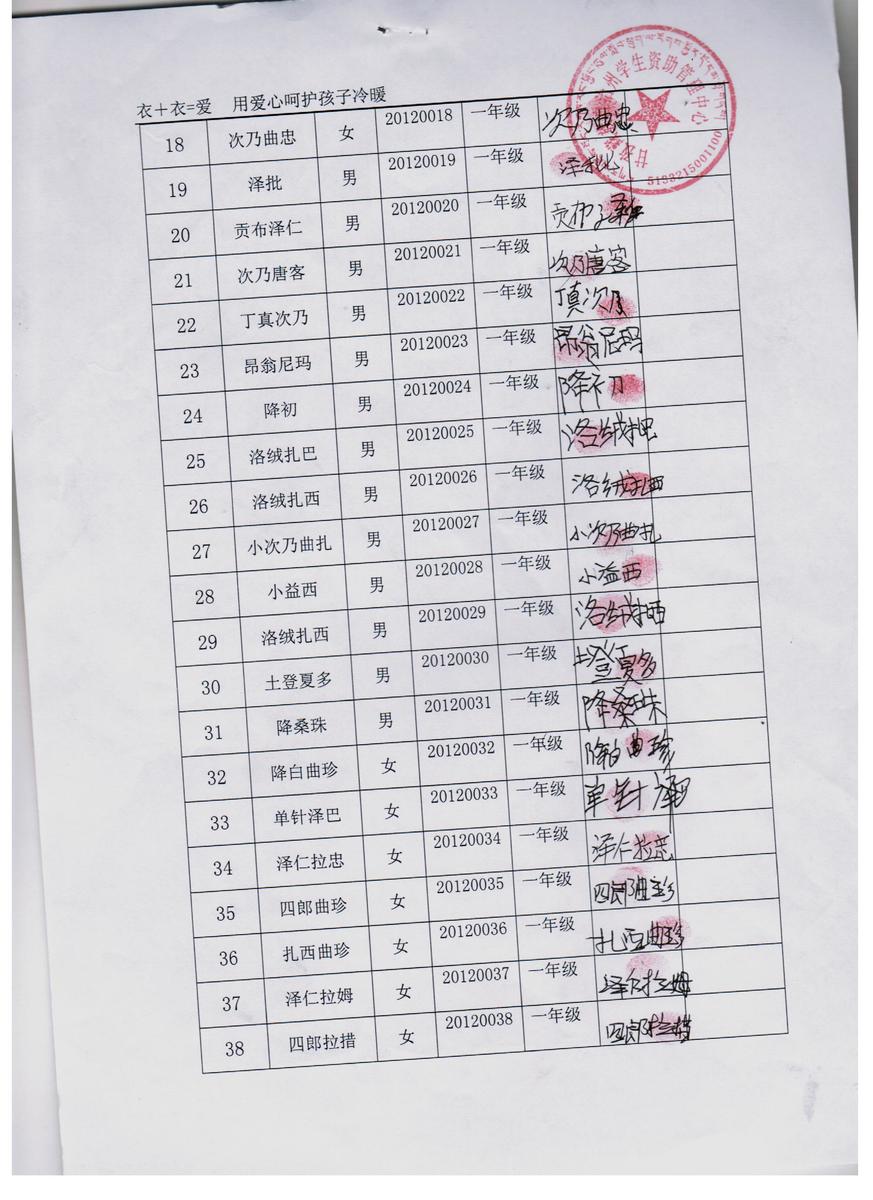 衣+衣=爱 用爱心呵护孩子冷暖
州学生资助管理中心
5133215001100
18 次乃曲忠 女 20120018 一年级 次乃曲忠
19 泽批 男 20120019 一年级 泽批
20 贡布泽仁 男 20120020 一年级 贡布泽仁
21 次乃唐客 男 20120021 一年级 次乃唐客
22 丁真次乃 男 20120022 一年级 丁真次乃
23 昂翁尼玛 男 20120023 一年级 昂翁尼玛
24 降初 男 20120024 一年级 降初
25 洛绒扎巴 男 20120025 一年级 洛绒扎巴
26 洛绒扎西 男 20120026 一年级 洛绒扎西
27 小次乃曲扎 男 20120027 一年级 小次乃曲扎
28 小益西 男 20120028 一年级 小益西
29 洛绒扎西 男 20120029 一年级 洛绒扎西
30 土登夏多 男 20120030 一年级 土登夏多
31 降桑珠 男 20120031 一年级 降桑珠
32 降白曲珍 女 20120032 一年级 降白曲珍
33 单针泽巴 女 20120033 一年级 单针泽巴
34 泽仁拉忠 女 20120034 一年级 泽仁拉忠
35 四郎曲珍 女 20120035 一年级 四郎曲珍
36 扎西曲珍 女 20120036 一年级 扎西曲珍
37 泽仁拉姆 女 20120037 一年级 泽仁拉姆
38 四郎拉措 女 20120038 一年级 四郎拉措